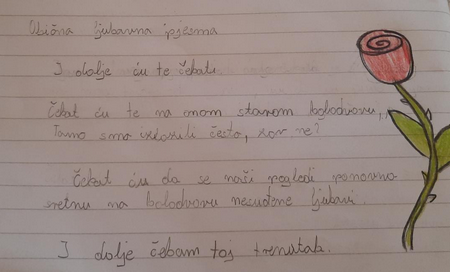 Obična ljubavna pjesma
I dalje ću te čekati.
Čekat ću te na onom starom kolodvoru,
Tamo smo izlazili često, zar ne?
Čekat ću da se naši pogledi ponovno
sretnu na kolodvoru nesuđene ljubavi.
I dalje čekam taj trenutak.